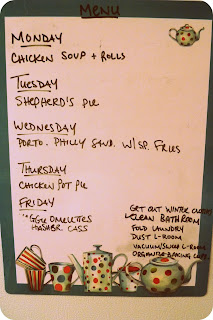 MENU
MONDAY
CHICKEN SOUP + ROLLS
TUESDAY
SHEPHERD'S PIE
WEDNESDAY
PORTO. PHILLY SAND. W/SP. FRIES
THURSDAY
CHICKEN POT PIE
FRIDAY
OMELETTES
HASHBR. CASS
GET OUT WINTER CLOTHES
CLEAN BATHROOM
FOLD LAUNDRY
DUST L-ROOM
VACUUM/ L-ROOM
ORGANIZE BAKING